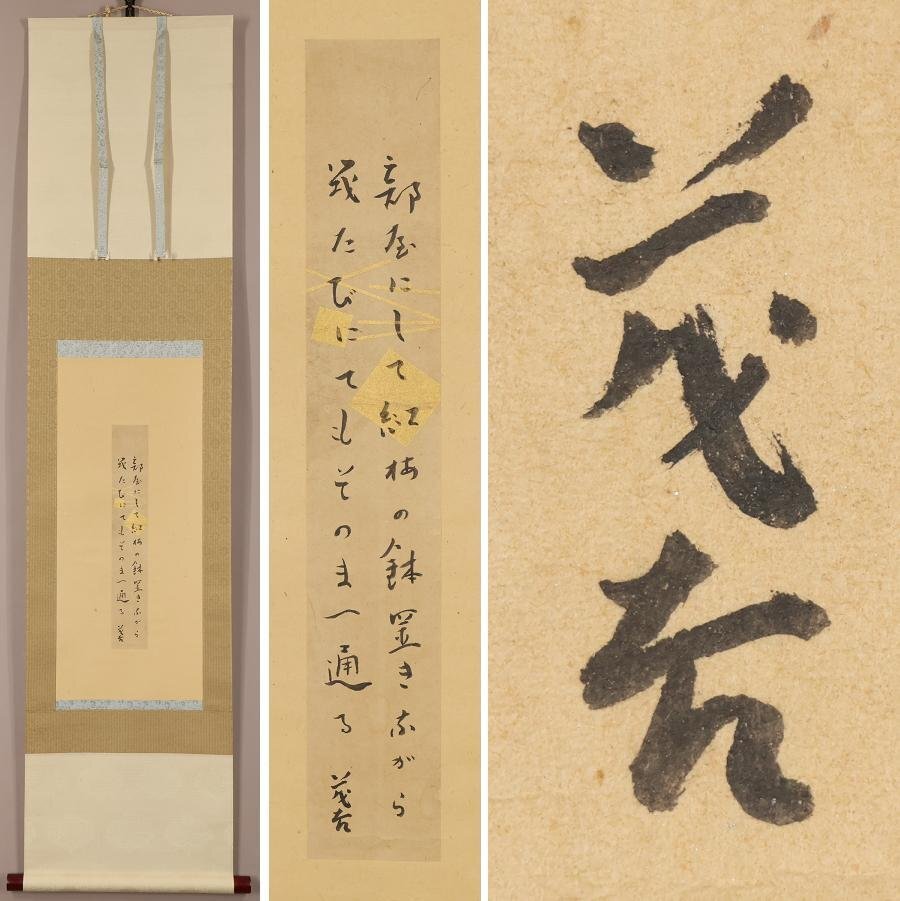 部屋にして紅梅の鉢置きながら
幾たびにてもそのまへ通る 茂吉
部屋にして紅梅の鉢置きながら
幾たびにてもそのまへ通る 茂吉
茂吉